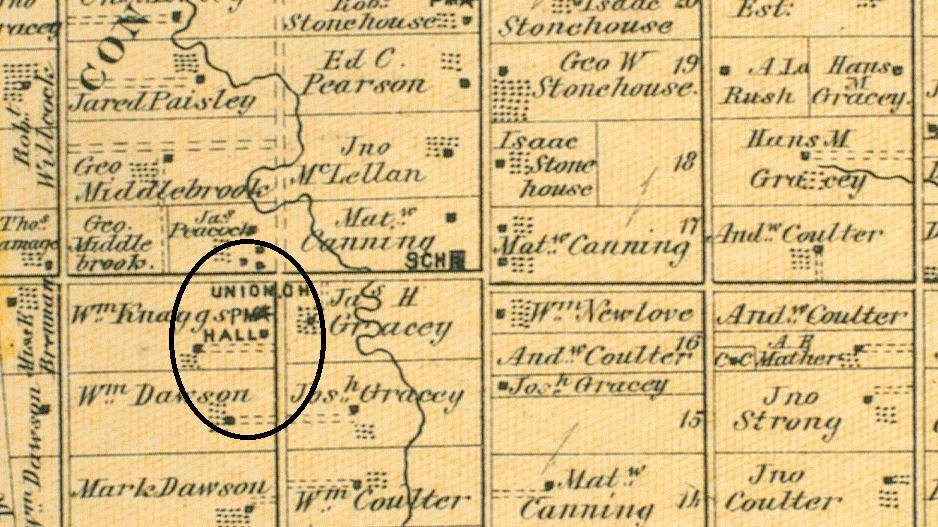 CON
Rob.t
Stonehouse
Isaac 20
Stonehouse
Est.
Jno
Gracey
Rob.t
Willcock
Jared Paisley
Ed C.
Pearson
Geo W 19
Stonehouse.
A La
Rush
Hans
M
Gracey.
Geo
Middlebrook
Jno
McLellan
Isaac
Stone
house
18
Hans M
Gracey
Thos
Geo.
Middle
brook.
Jas
Peacock
Mat.w
Canning
SCH
17
Mat.w Canning
And.w Coulter
Wm Knaggs
UNION CH
PM
HALL
Jas H
Gracey
Wm Newlove
And.w Coulter
16
And.w Coulter
C&C
A B
Mathers
Brennan
Wm Dawson
Wm Dawson
Josh Gracey
Josh Gracey
15
Jno
Strong
Mark Dawson
Wm Coulter
Mat.w
Canning
14
Jno
Coulter